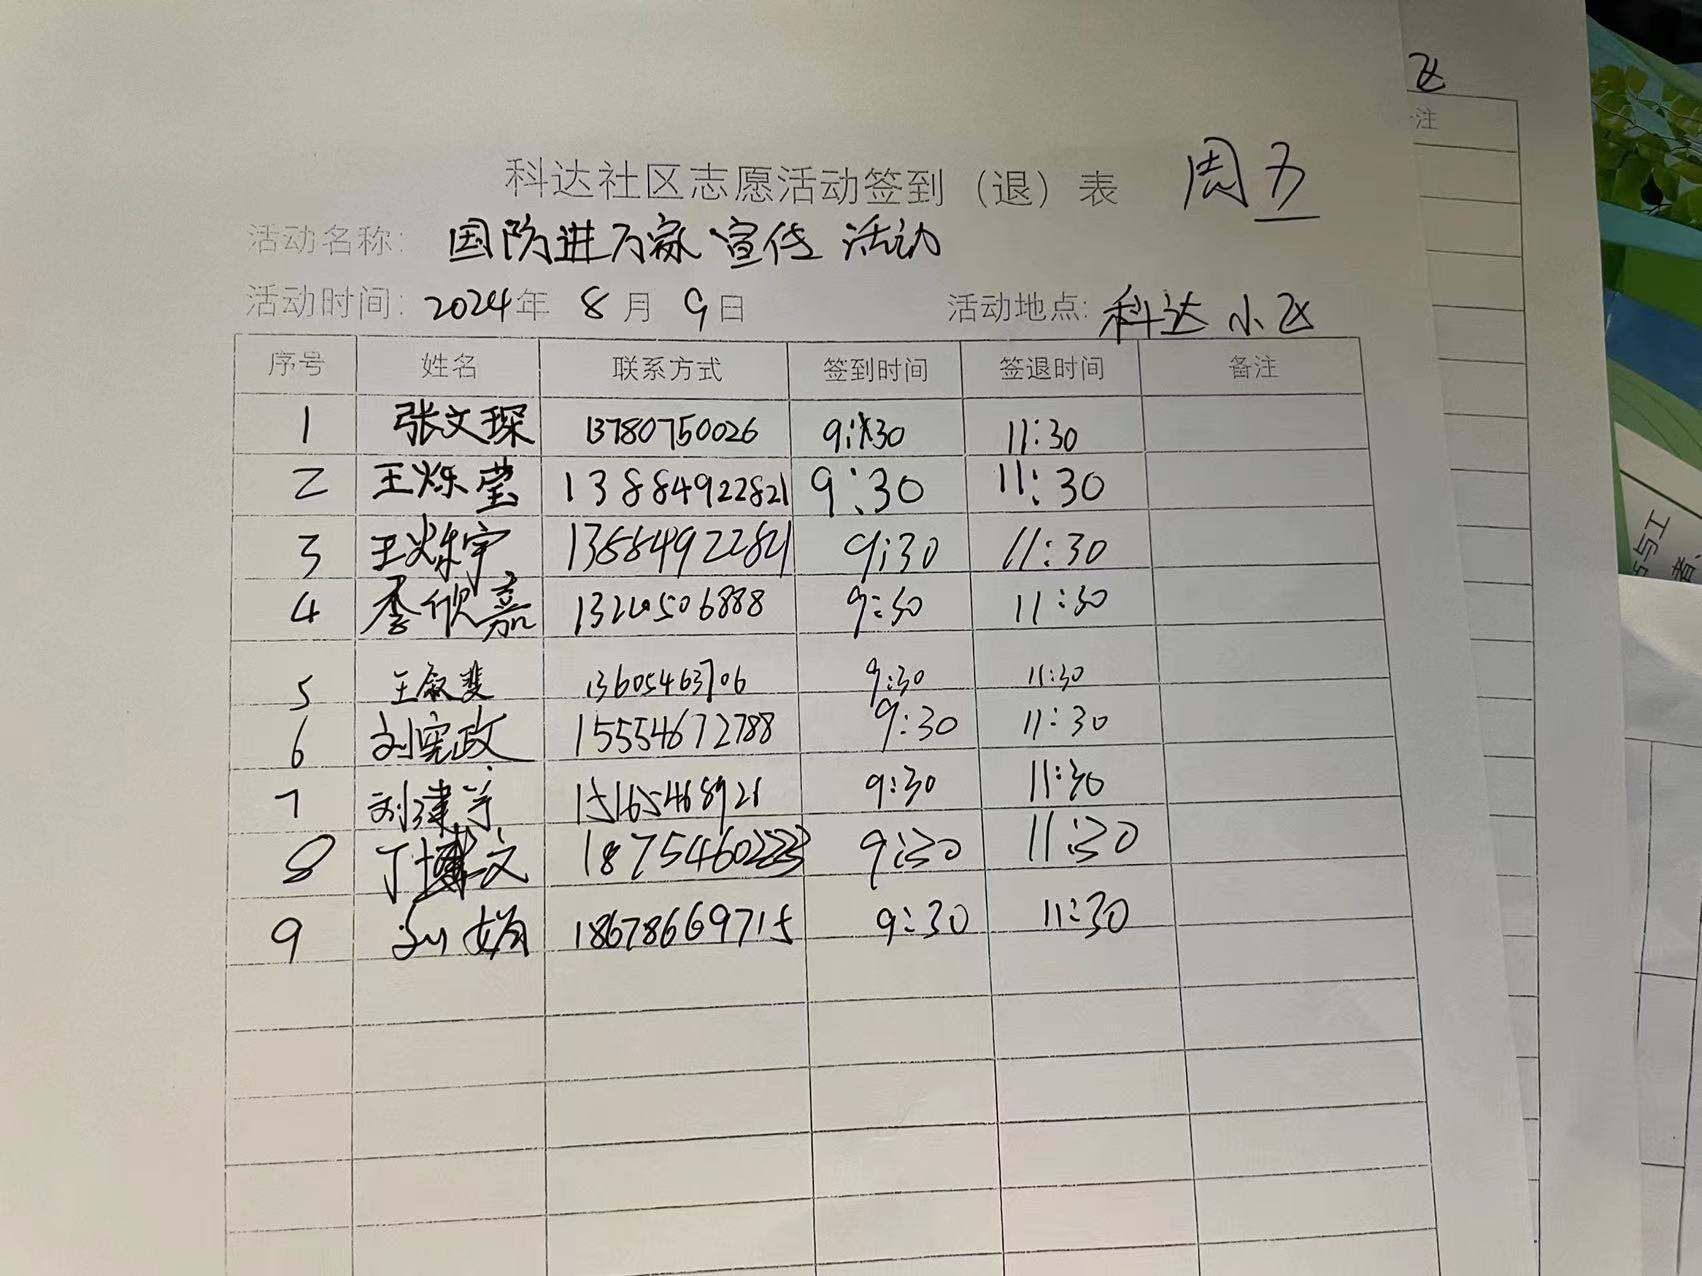 区
备注
科达社区志愿活动签到（退）表 周五
活动名称: 国防进万家宣传活动
活动时间: 2024年 8月 9日 活动地点: 科达小区
序号 姓名 联系方式 签到时间 签退时间 备注
1 张文琛 13780750026 9:30 11:30
2 王烁莹 13884922821 9:30 11:30
3 王烁宇 13884922821 9:30 11:30
4 李欣嘉 9:30 11:30
5 王叙斐 13605463706 9:30 11:30
6 刘宪政 15554672788 9:30 11:30
7 刘建 15165468921 9:30 11:30
8 丁博文 9:30 11:30
9 娟 18678669715 9:30 11:30
与工
者、